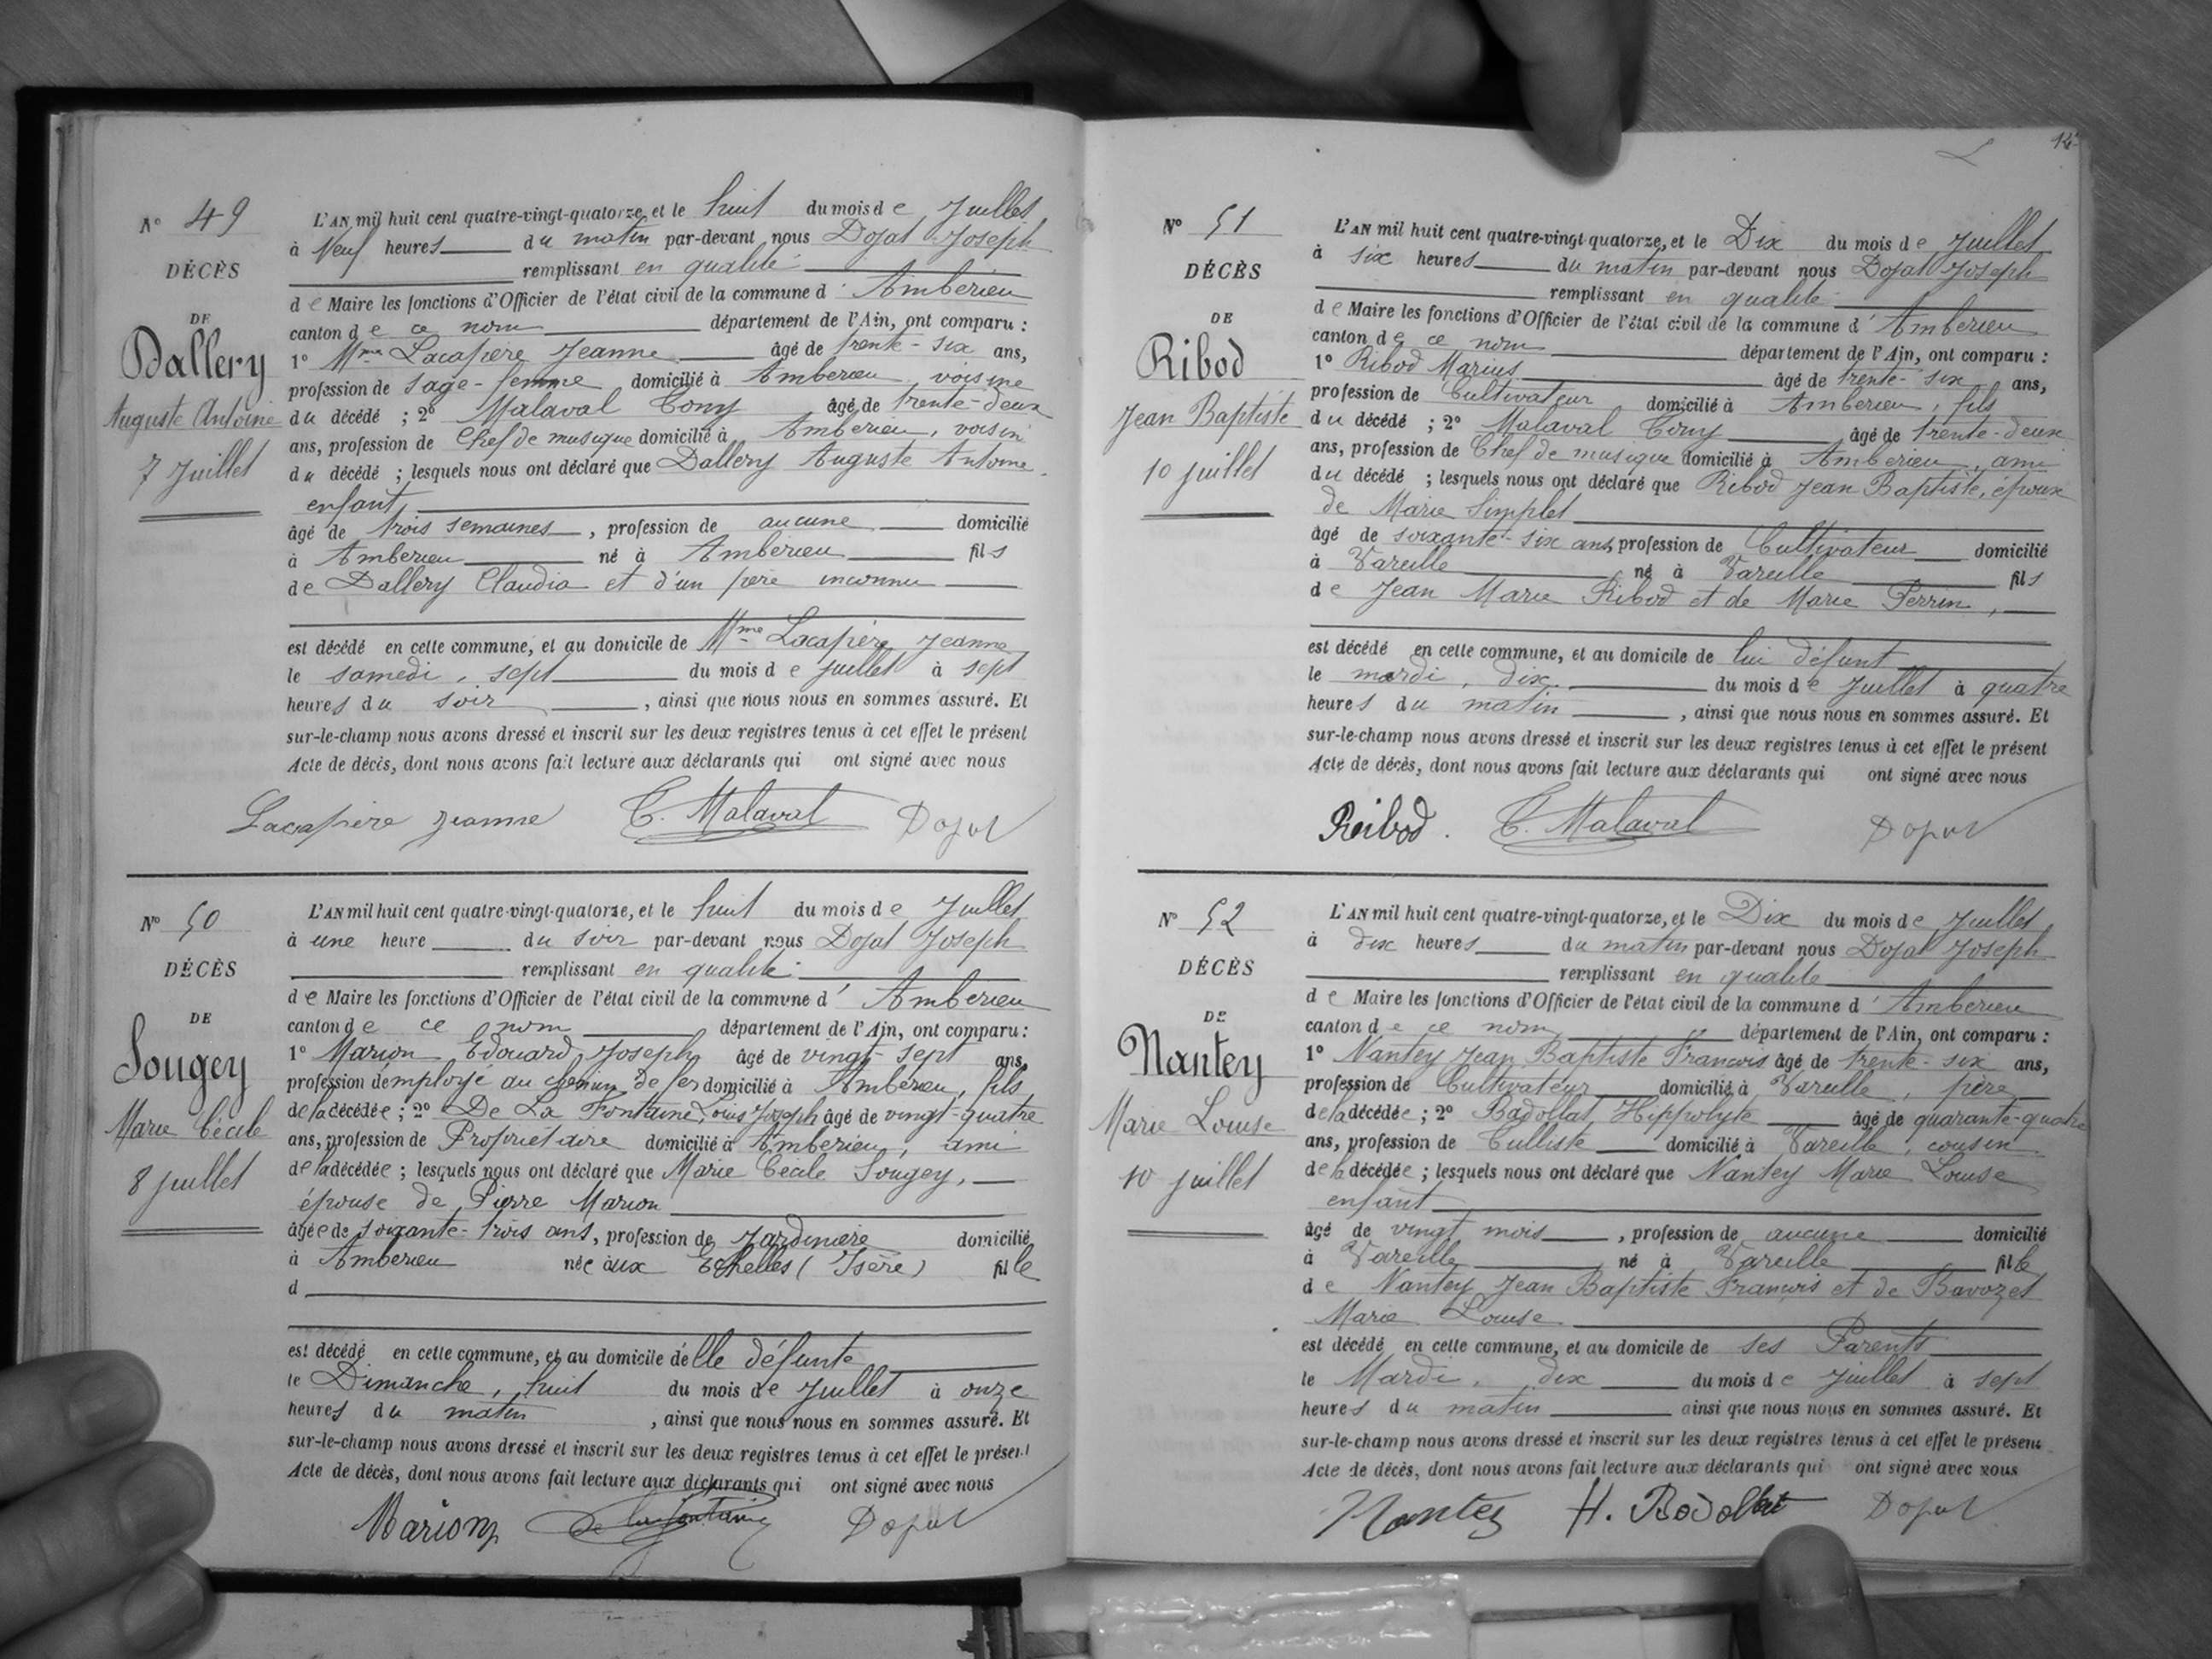 N° 49
DÉCÈS
DE
Dallery
Auguste Antoine
7 Juillet
L'AN mil huit cent quatre-vingt-quatorze, et le huit du mois de Juillet,
à Neuf heures du matin par-devant nous Dojat Joseph
remplissant en qualité
de Maire les fonctions d'Officier de l'état civil de la commune d' Ambérieu
canton de ce nom département de l'Ain, ont comparu :
1° Mme Lacapère Jeanne âgé de trente-six ans,
profession de sage-femme domicilié à Ambérieu voisine
du décédé ; 2° Malaval Tony âgé de trente-deux
ans, profession de Chef de musique domicilié à Ambérieu, voisin
du décédé ; lesquels nous ont déclaré que Dallery Auguste Antoine
enfant,
âgé de trois semaines, profession de aucune domicilié
à Ambérieu né à Ambérieu fils
de Dallery Claudia et d'un père inconnu
est décédé en cette commune, et au domicile de Mme Lacapère Jeanne
le samedi, sept du mois de juillet à sept
heures du soir, ainsi que nous nous en sommes assuré. Et
sur-le-champ nous avons dressé et inscrit sur les deux registres tenus à cet effet le présent
Acte de décès, dont nous avons fait lecture aux déclarants qui ont signé avec nous
Lacapère Jeanne T. Malaval Dojat
N° 50
DÉCÈS
DE
Sougey
Marie Cécile
8 juillet
L'AN mil huit cent quatre-vingt-quatorze, et le huit du mois de Juillet
à une heure du soir par-devant nous Dojat Joseph
remplissant en qualité
de Maire les fonctions d'Officier de l'état civil de la commune d' Ambérieu
canton de ce nom département de l'Ain, ont comparu :
1° Marion Edouard Joseph âgé de vingt-sept ans,
profession d'employé au chemin de fer domicilié à Ambérieu, fils
de la décédée ; 2° De La Fontaine Louis Joseph âgé de vingt-quatre
ans, profession de Propriétaire domicilié à Ambérieu, ami
de la décédée ; lesquels nous ont déclaré que Marie Cécile Sougey,
épouse de Pierre Marion
âgée de soixante-trois ans, profession de Jardinière domicilié
à Ambérieu née aux Echelles (Isère) fille
d
est décédé en cette commune, et au domicile d'elle défunte
le Dimanche, huit du mois de Juillet à onze
heures du matin, ainsi que nous nous en sommes assuré. Et
sur-le-champ nous avons dressé et inscrit sur les deux registres tenus à cet effet le présent
Acte de décès, dont nous avons fait lecture aux déclarants qui ont signé avec nous
Marion De la Fontaine Dojat
14
N° 51
DÉCÈS
DE
Ribod
Jean Baptiste
10 juillet
L'AN mil huit cent quatre-vingt-quatorze, et le Dix du mois de Juillet
à six heures du matin par-devant nous Dojat Joseph
remplissant en qualité
de Maire les fonctions d'Officier de l'état civil de la commune d' Ambérieu
canton de ce nom département de l'Ain, ont comparu :
1° Ribod Marius âgé de trente-six ans,
profession de Cultivateur domicilié à Ambérieu, fils
du décédé ; 2° Malaval Tony âgé de trente-deux
ans, profession de Chef de musique domicilié à Ambérieu, ami
du décédé ; lesquels nous ont déclaré que Ribod Jean Baptiste, époux
de Marie Simplet
âgé de soixante-six ans, profession de Cultivateur domicilié
à Vareille né à Vareille fils
de Jean Marie Ribod et de Marie Perrin,
est décédé en cette commune, et au domicile de lui défunt
le mardi, dix du mois de Juillet à quatre
heures du matin, ainsi que nous nous en sommes assuré. Et
sur-le-champ nous avons dressé et inscrit sur les deux registres tenus à cet effet le présent
Acte de décès, dont nous avons fait lecture aux déclarants qui ont signé avec nous
Reibod. T. Malaval Dojat
N° 52
DÉCÈS
DE
Nantey
Marie Louise
10 juillet
L'AN mil huit cent quatre-vingt-quatorze, et le Dix du mois de Juillet
à dix heures du matin par-devant nous Dojat Joseph
remplissant en qualité
de Maire les fonctions d'Officier de l'état civil de la commune d' Ambérieu
canton de ce nom département de l'Ain, ont comparu :
1° Nantey Jean Baptiste François âgé de trente-six ans,
profession de Cultivateur domicilié à Vareille, père
de la décédée ; 2° Badollat Hippolyte âgé de quarante-quatre
ans, profession de Tulliste domicilié à Vareille, cousin
de la décédée ; lesquels nous ont déclaré que Nantey Marie Louise
enfant
âgé de vingt mois, profession de aucune domicilié
à Vareille né à Vareille fille
de Nantey Jean Baptiste François et de Bavozet
Marie Louise
est décédé en cette commune, et au domicile de ses Parents
le Mardi, dix du mois de Juillet à sept
heures du matin ainsi que nous nous en sommes assuré. Et
sur-le-champ nous avons dressé et inscrit sur les deux registres tenus à cet effet le présent
Acte de décès, dont nous avons fait lecture aux déclarants qui ont signé avec nous
Nantey H. Badollat Dojat